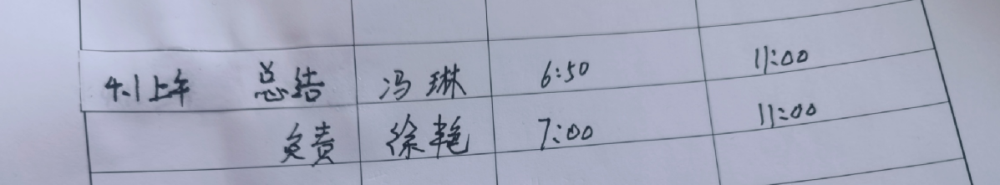 4.1上午 总结 冯琳 6:50 11:00
负责 徐艳 7:00 11:00